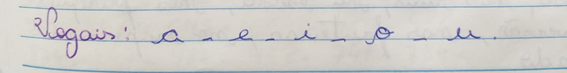 Vogais: a - e - i - o - u.